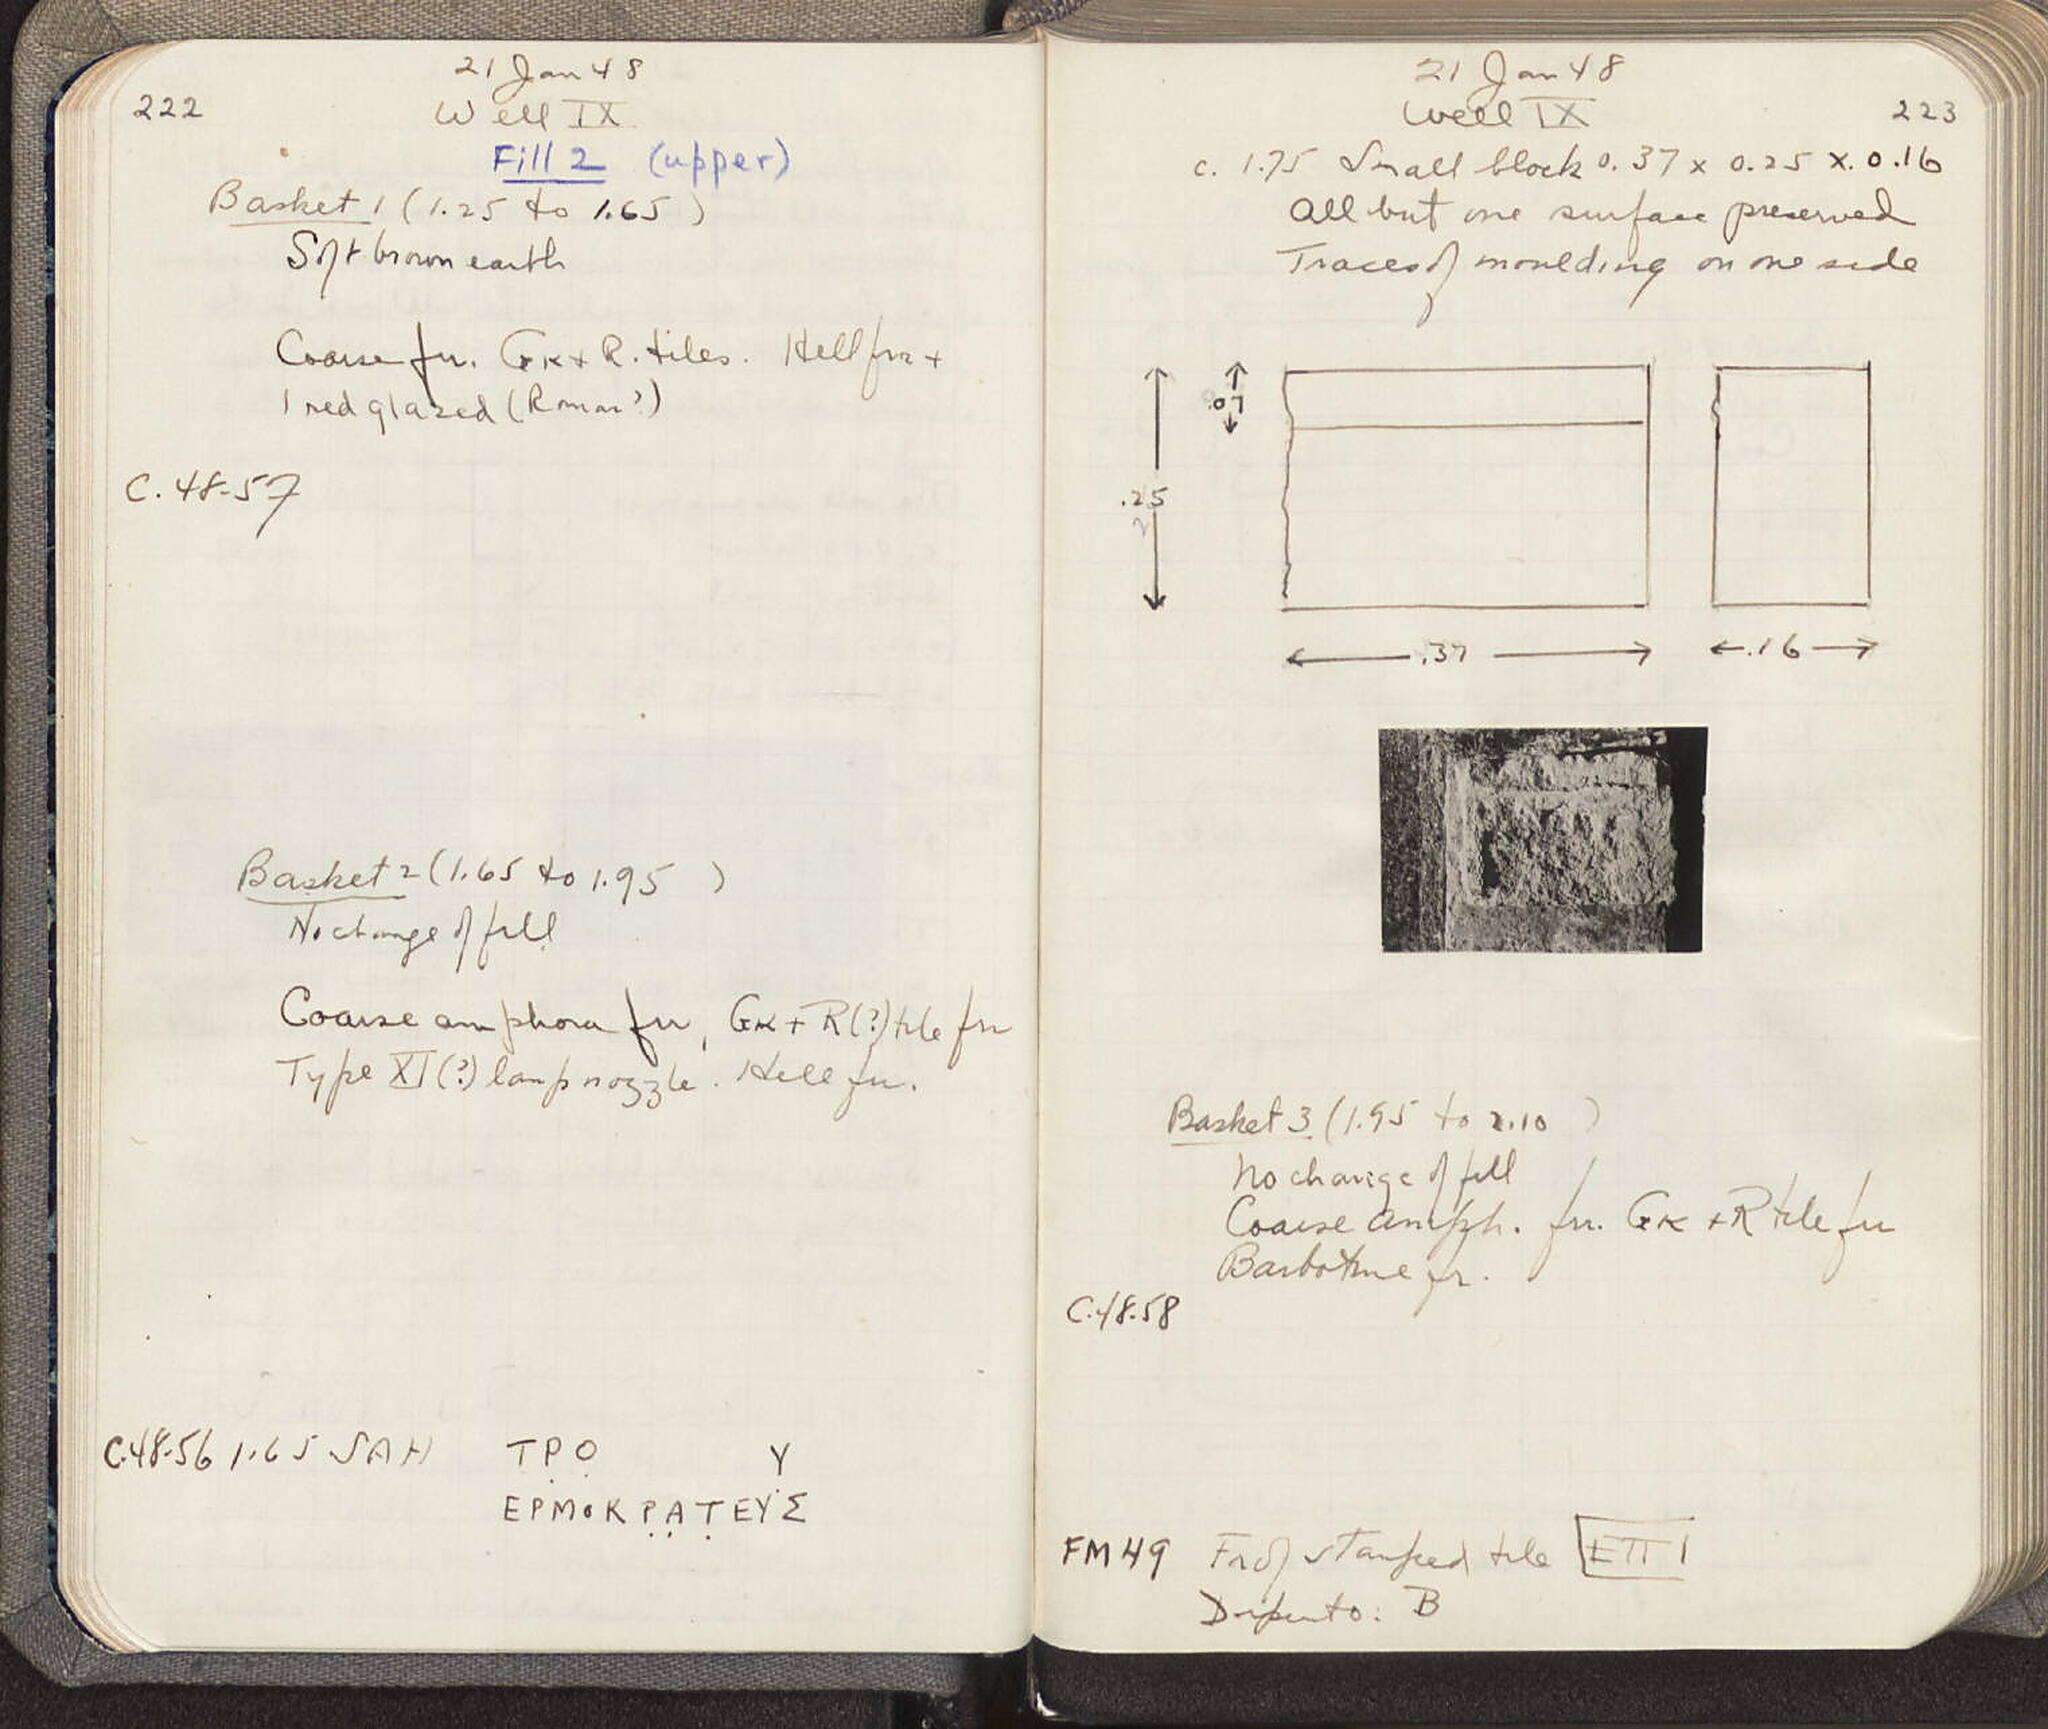 222
21 Jan 48
Well IX
Fill 2 (upper)
Basket 1 (1.25 to 1.65)
Soft brown earth
Coarse fr. Gk + R. tiles. Hell frr +
1 red glazed (Roman?)
C. 48-57
Basket 2 (1.65 to 1.95 )
No change of fill
Coarse amphora frr, Gk + R(?) tile frr
Type XI(?) lamp nozzle. Hell frr.
C.48-56 1.65 SAH ΤΡΟ Υ
ΕΡΜΟΚΡΑΤΕΥΣ
21 Jan 48
Well IX
223
c. 1.75 Small block 0.37 x 0.25 x 0.16
All but one surface preserved
Traces of moulding on one side
.07
.25
.37
.16
Basket 3 (1.95 to 2.10 )
No change of fill
Coarse amph. frr. Gk + R tile frr
Barbotine fr.
C.48-58
FM 49 Fr of stamped tile ΕΠΙ
B